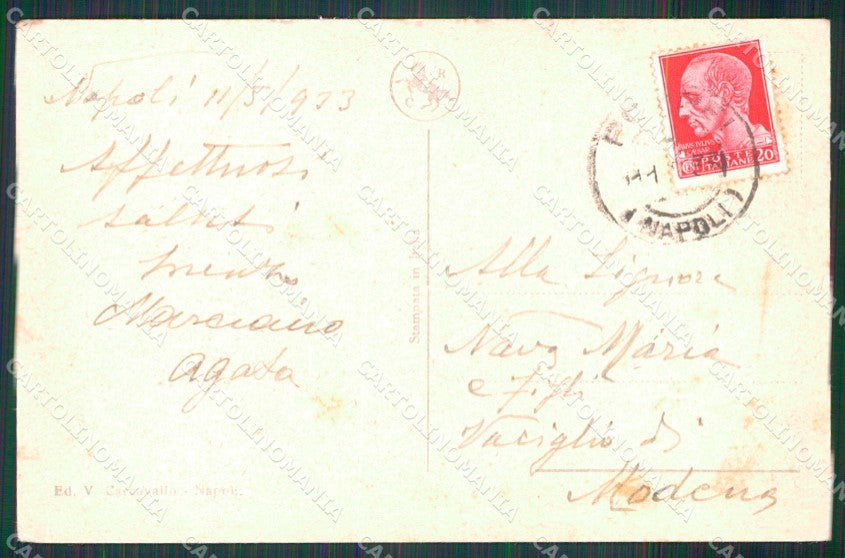 Napoli 11/5/933
Affettuosi
saluti
Marciano
Agata
Ed. V. Carcavallo - Napoli.
Stampata in Italia
POSTE
ITALIANE 20
CAESAR
NAPOLI
Alla Signora
Nava Maria
e figli
Vaciglio di
Modena
CARTOLINOMANIA